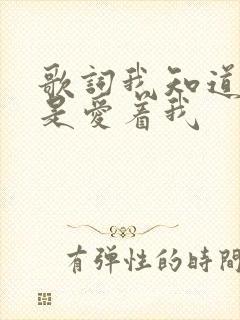 歌詞我知道
是愛着我
有弹性的時間